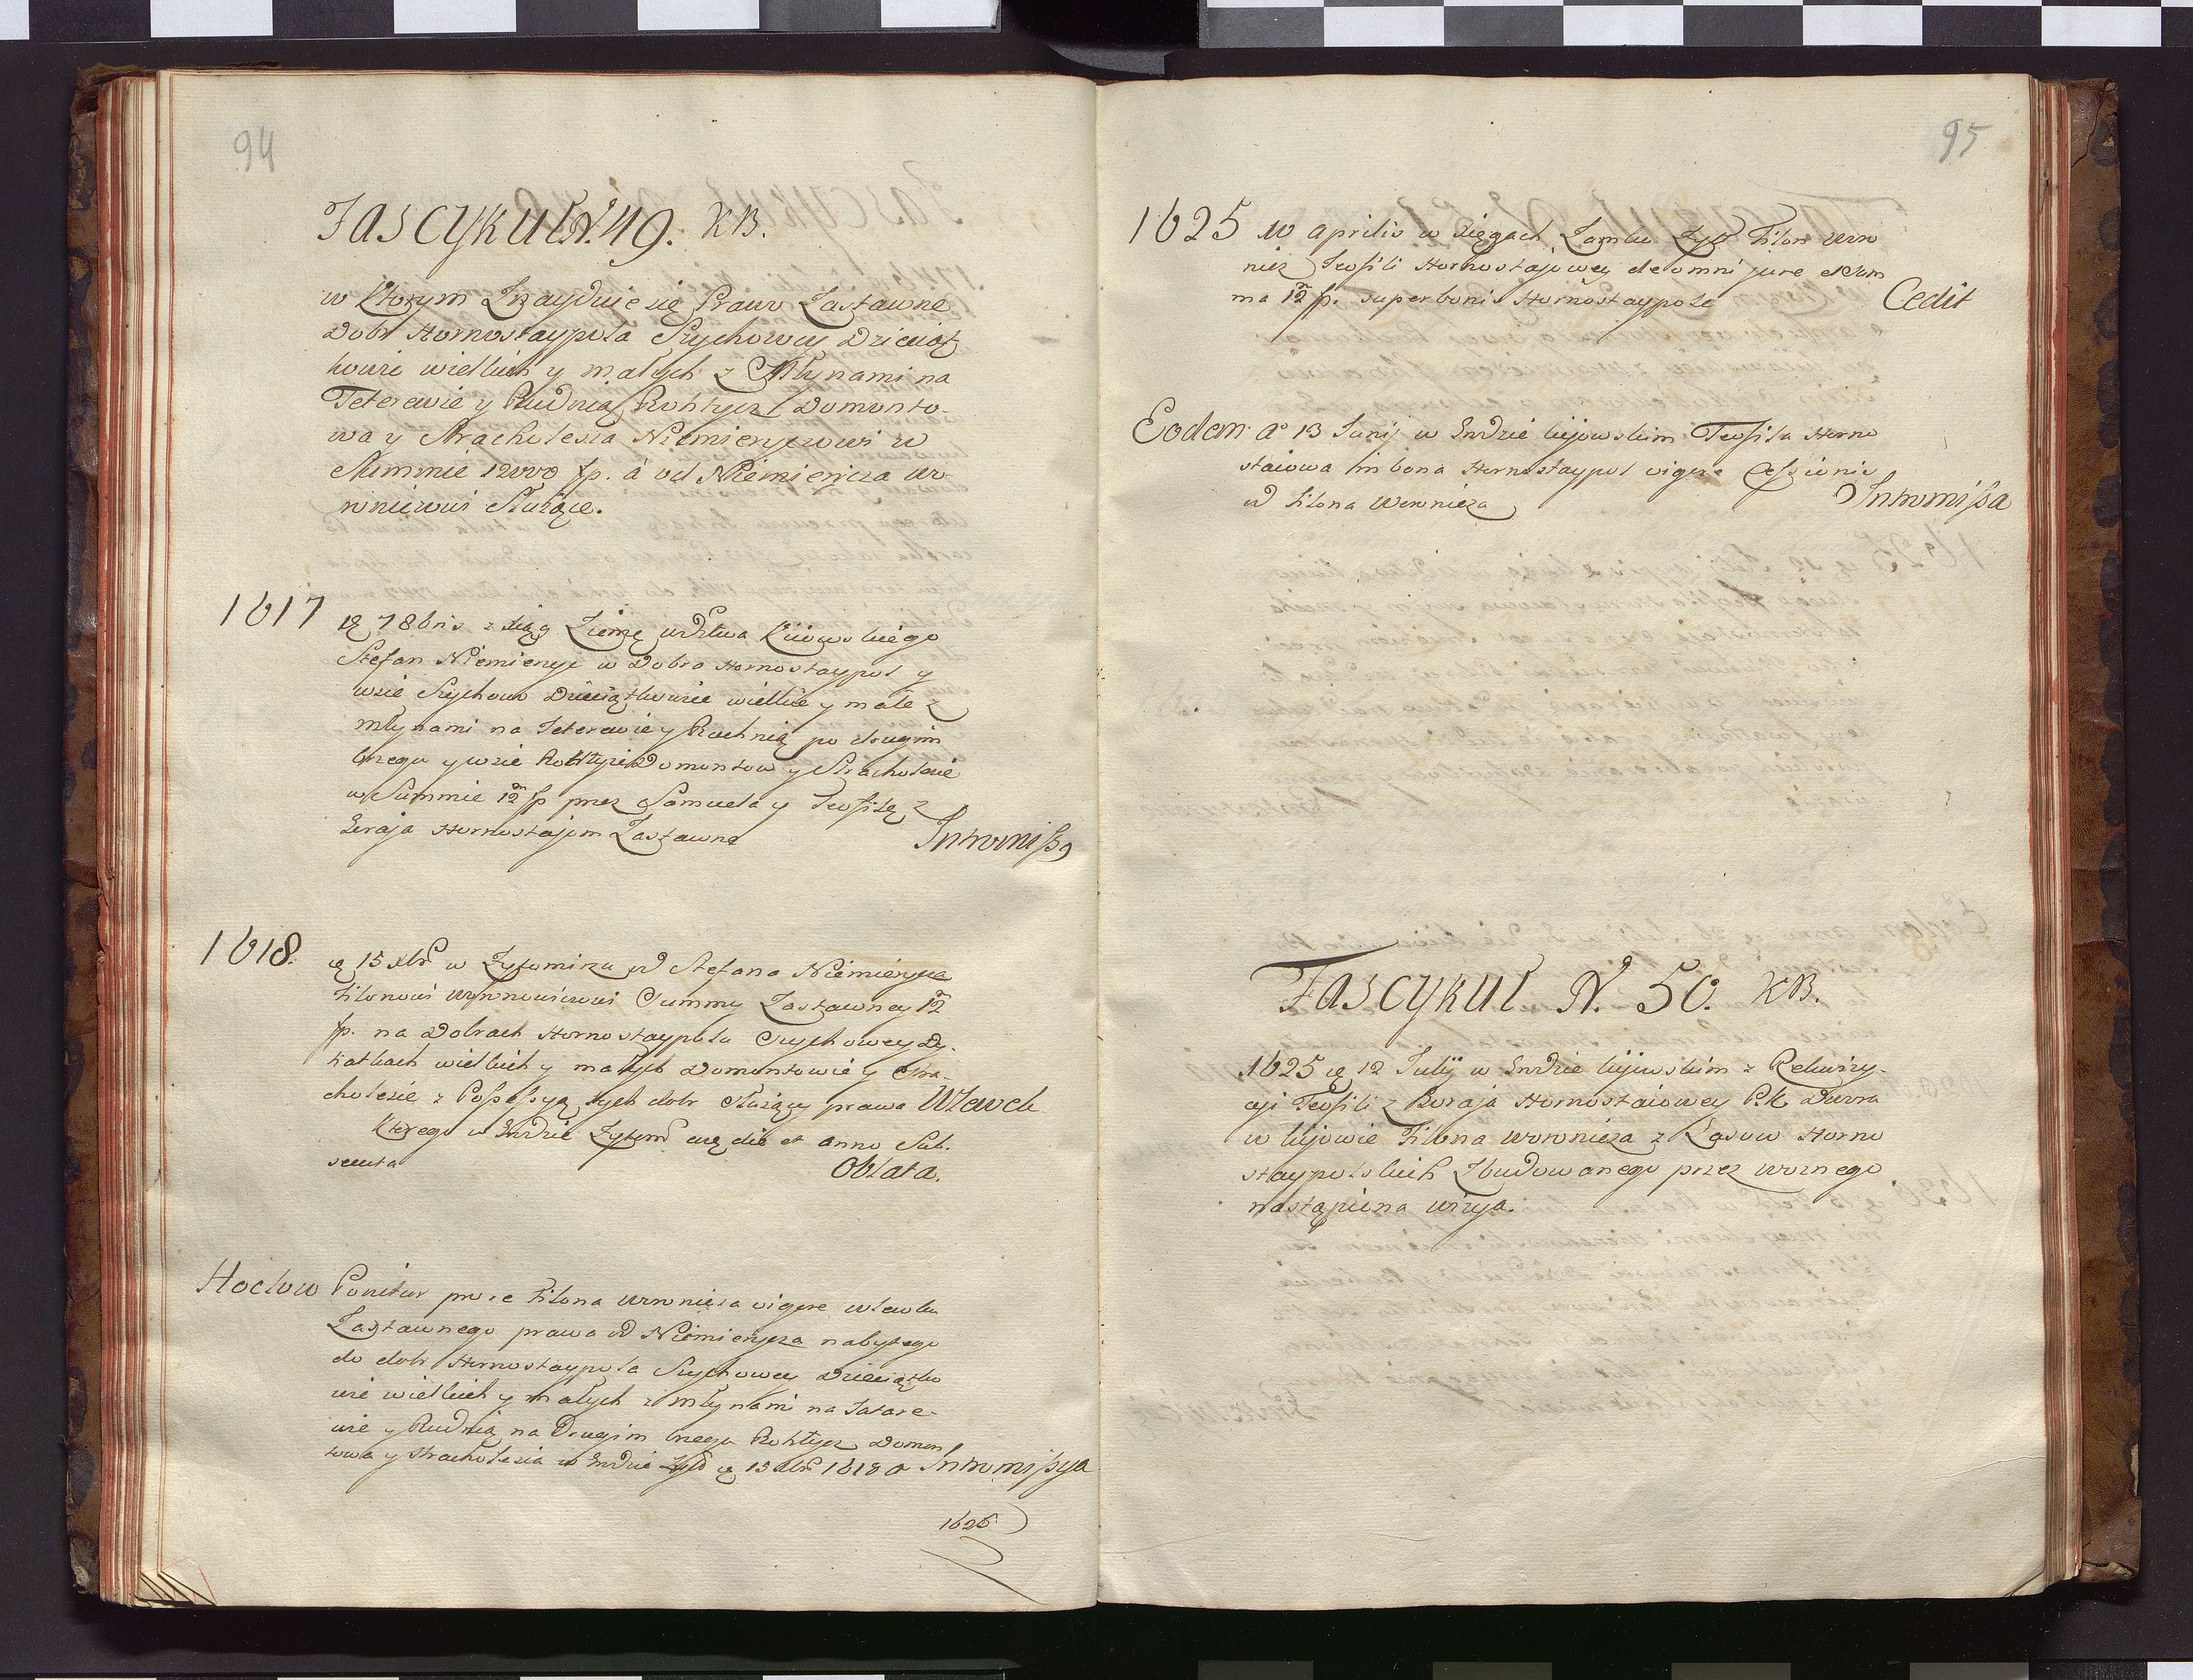 94
Fascykuł N. 49. KB.
w ktorym Znayduie się Prawo Zastawne
Dobr Hornostaypola Szychowey Dzieciąt
kowie wielkich y małych z Młynami na
Teterewie y Rudnią, Rohtycz Domonto-
wa y Stracholesia Niemieryczowi w
Summie 12000 fp. á od Niemierycza Wo-
ronicowi Służące.
1617 ię 7 8bris z Xiąg Ziemę wdztwa Kiiowskiego
Stefan Niemierycz w Dobra Hornostaypol y
wsie Szychow Dzieciątkowice wielkie y małe z
młynami na Teterewie y Rudnią po drugim
brzegu y wsie Rohtycze Domontow y Stracholesie
w Summie 12 fp przez Samuela y Teofilę z
Goraja Hornostajom Zastawne Intromissa
1618. ię 15 xbr w Zytomirzu od Stefana Niemierycza
Filonowi Woroniczowi Summy Zastawney 12
fp. na Dobrach Hornostaypolu Szychowey Dy-
katkach wielkich y małych Domontowie y Stra-
cholesie z Possessyą tych dobr służący prawa Wlewek
Ktorego w Grdzie Zytom. eię die et anno Sub-
secuta Oblata.
Hoclow Ponitur przez Filona Woronicza vigore wlewku
Zastawnego prawa od Niemierycza nabytego
do dobr Hornostaypola Szychowey Dzieciątko
wie wielkich y małych z młynami na Tatare-
wie y Rudnią na Drugim brzegu Rohtycz Domon
towa y Stracholesia w Grdzie Zyt ię 15 xbr 1618 a Intromissya
1625
95
1625 10 aprilis w Xięgach Zamku Zyt Filon Woro
nicz Teofili Hornostajowey de omni jure et Sum
ma 12 fp. super bonis Hornostaypole Cedit
Eodem Aº 13 Junij w Grdzie kijowskim Teofila Horno
staiowa in bona Hornostaypol vigore Cessionis
od Filona Woronicza Intromissa
Fascykuł N. 50. KB.
1625 ię 12 Julij w Grdzie kijowskim z Rekwizy-
cyi Teofili z Goraja Hornostaiowey P.K. Dwora
w kijowie Filona Woronicza z Lasow Horno
staypolskich Zbudowanego przez woznego
nastąpiona wizya.